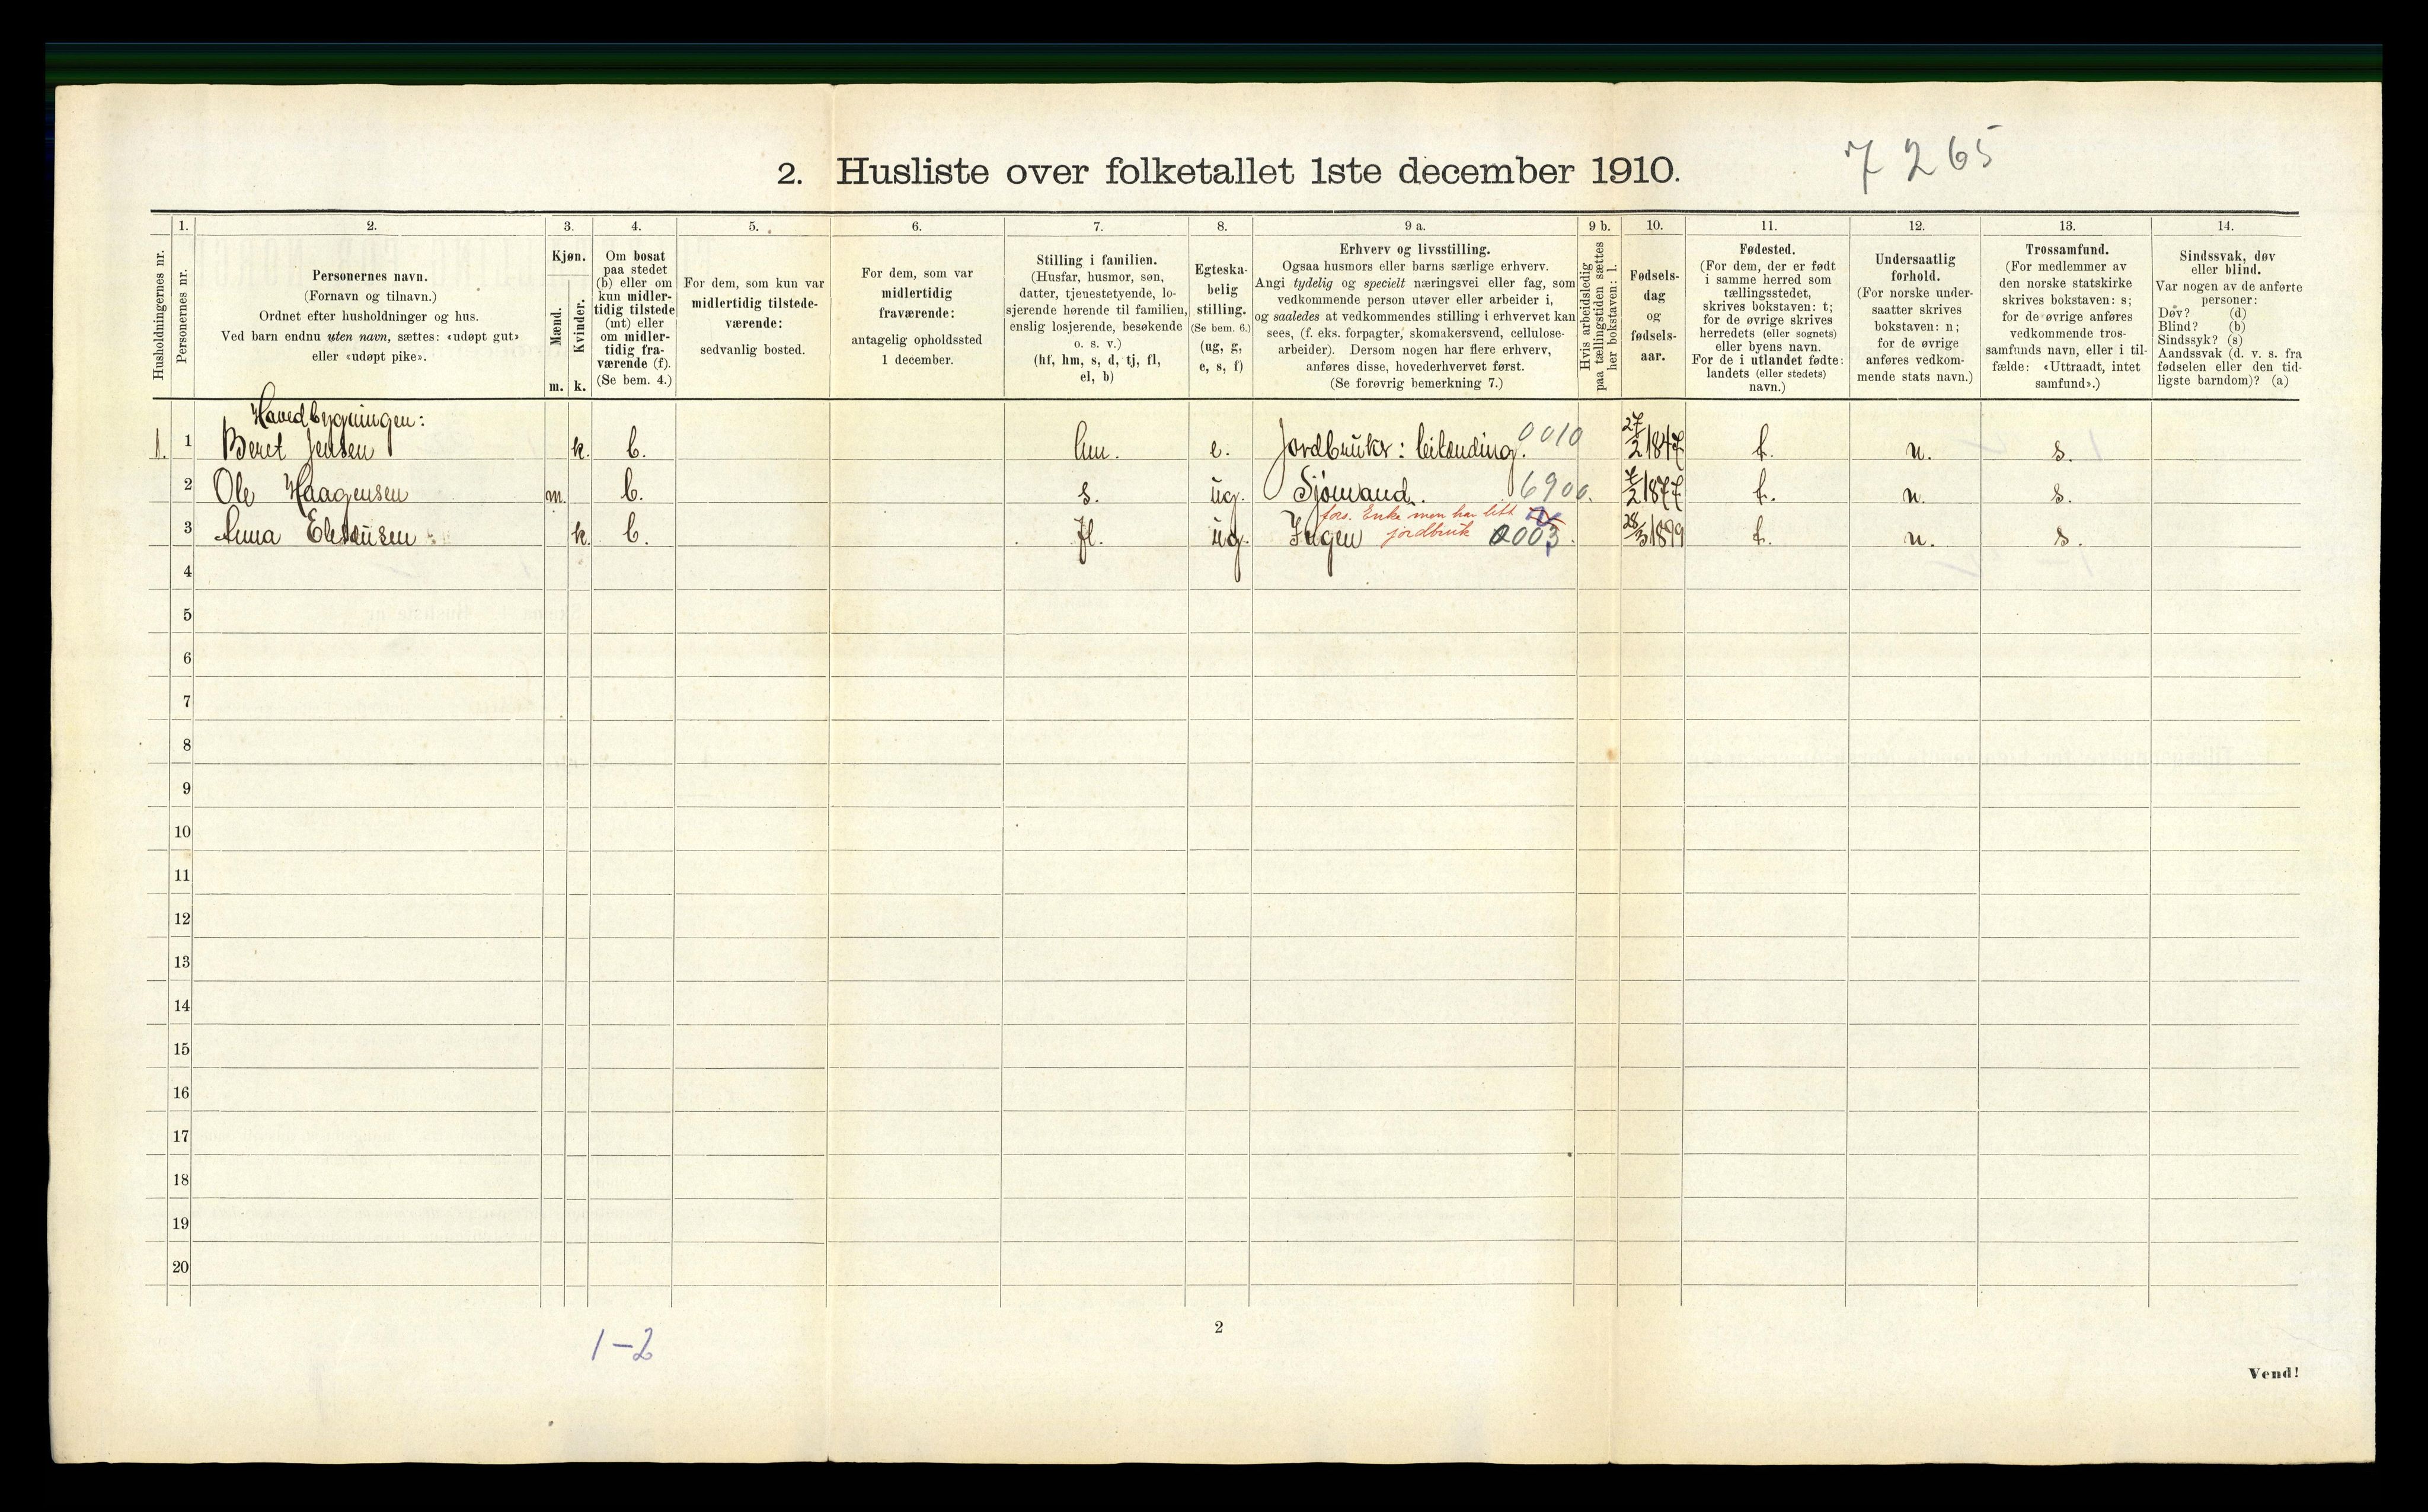 7265
2. Husliste over folketallet 1ste december 1910.
Husholdningernes nr.
1.
Personernes nr.
2.
Personernes navn.
(Fornavn og tilnavn.)
Ordnet efter husholdninger og hus.
Ved barn endnu uten navn, sættes: «udøpt gut»
eller «udøpt pike».
3.
Kjøn.
Mænd.
Kvinder.
m. k.
4.
Om bosat
paa stedet
(b) eller om
kun midler-
tidig tilstede
(mt) eller
om midler-
tidig fra-
værende (f).
(Se bem. 4.)
5.
For dem, som kun var
midlertidig tilstede-
værende:
sedvanlig bosted.
6.
For dem, som var
midlertidig
fraværende:
antagelig opholdssted
1 december.
7.
Stilling i familien.
(Husfar, husmor, søn,
datter, tjenestetyende, lo-
sjerende hørende til familien,
enslig losjerende, besøkende
o. s. v.)
(hf, hm, s, d, tj, fl,
el, b)
8.
Egteska-
belig
stilling.
(Se bem. 6.)
(ug, g,
e, s, f)
9 a.
Erhverv og livsstilling.
Ogsaa husmors eller barns særlige erhverv.
Angi tydelig og specielt næringsvei eller fag, som
vedkommende person utøver eller arbeider i,
og saaledes at vedkommendes stilling i erhvervet kan
sees, (f. eks. forpagter, skomakersvend, cellulose-
arbeider). Dersom nogen har flere erhverv,
anføres disse, hovederhvervet først.
(Se forøvrig bemerkning 7.)
9 b.
Hvis arbeidsledig
paa tællingstiden sættes
her bokstaven: l.
10.
Fødsels-
dag
og
fødsels-
aar.
11.
Fødested.
(For dem, der er født
i samme herred som
tællingsstedet,
skrives bokstaven: t;
for de øvrige skrives
herredets (eller sognets)
eller byens navn.
For de i utlandet fødte:
landets (eller stedets)
navn.)
12.
Undersaatlig
forhold.
(For norske under-
saatter skrives
bokstaven: n;
for de øvrige
anføres vedkom-
mende stats navn.)
13.
Trossamfund.
(For medlemmer av
den norske statskirke
skrives bokstaven: s;
for de øvrige anføres
vedkommende tros-
samfunds navn, eller i til-
fælde: «Uttraadt, intet
samfund».)
14.
Sindssvak, døv
eller blind.
Var nogen av de anførte
personer:
Døv? (d)
Blind? (b)
Sindssyk? (s)
Aandssvak (d. v. s. fra
fødselen eller den tid-
ligste barndom)? (a)
Hovedbygningen:
1. 1 Beret Jensen k. b. hm. e. Jordbruker: leilending. 0010 27/2 1847 t. n. s.
2 Ole Haagensen m. b. s. ug. Sjømand. 6900. 7/2 1877 t. n. s.
fors. Enke men har litt
3 Anna k. b. fl. ug. Ingen jordbruk 0003. 28/3 1899 t. n. s.
4
5
6
7
8
9
10
11
12
13
14
15
16
17
18
19
20
1-2
2
Vend!